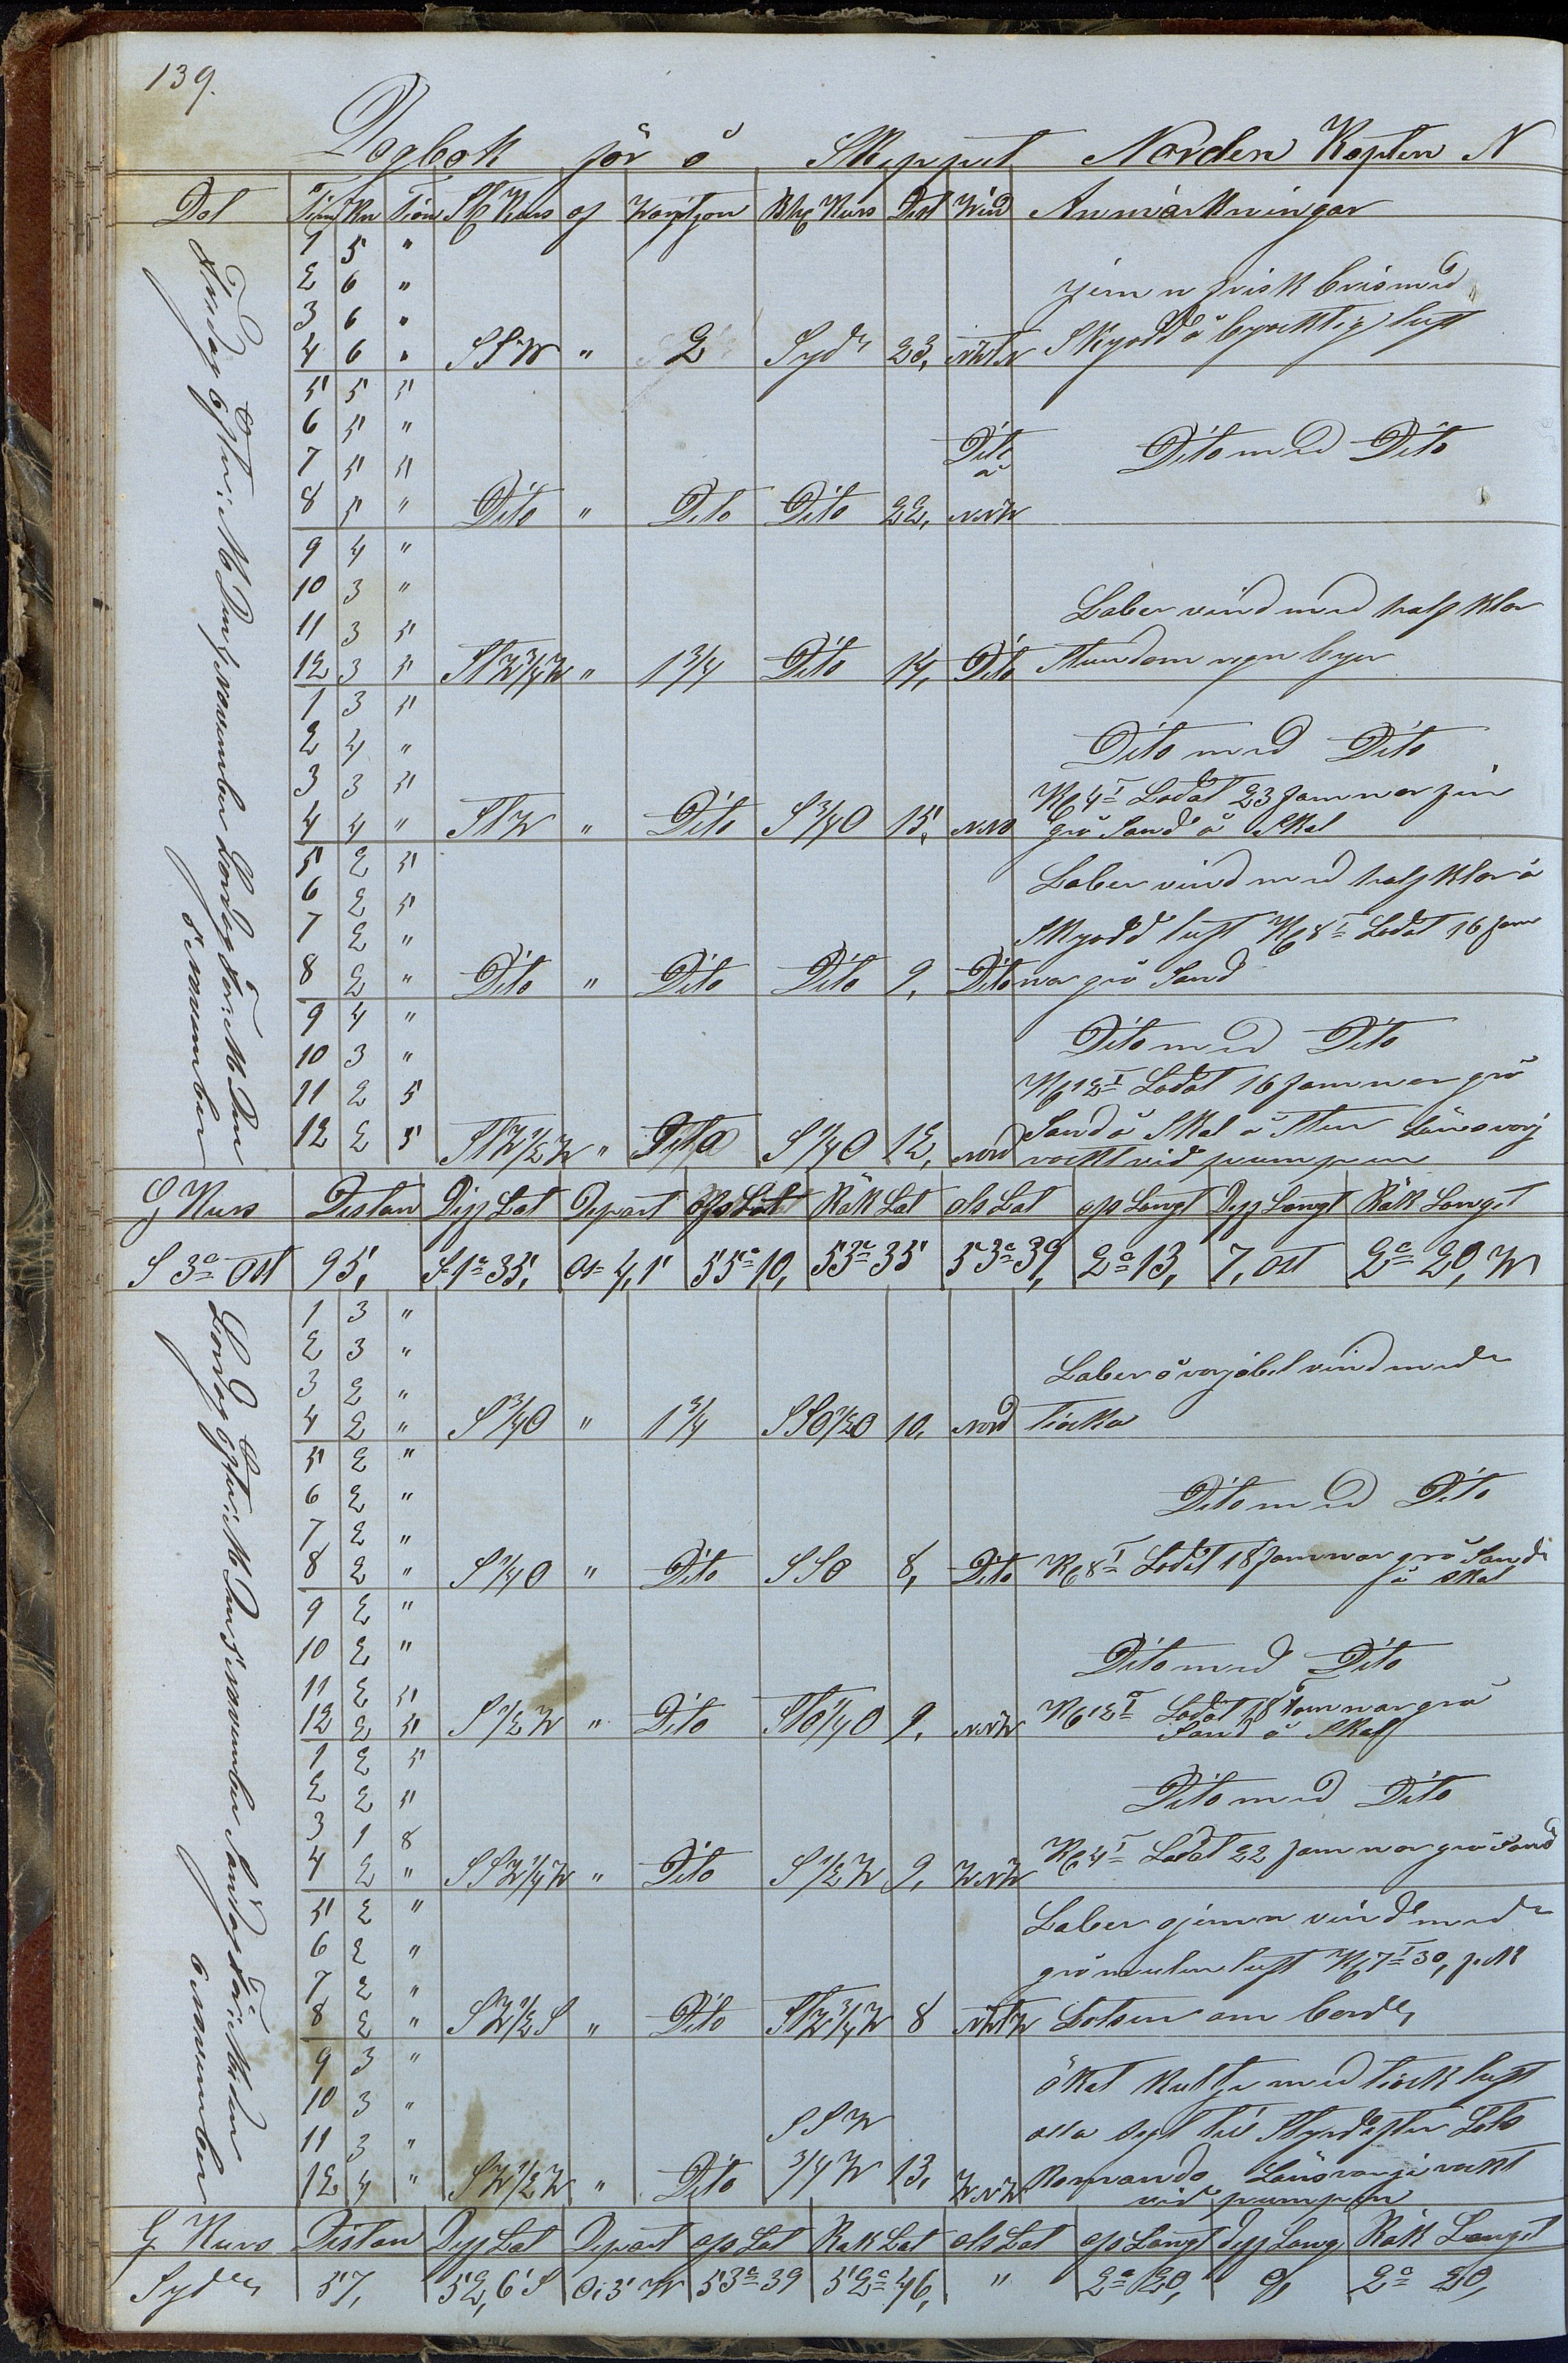 139.
Dagbok för å Skeppet Norden Kapten N
Dat Tim Kn Tion St Kurs af Wanfgon Bhl Kurs Dist Wind Anmärkningar
1 5 "
2 6 " jemn frisk bris med
3 6 "
4 6 " SSW " 2 Syd 23, NWtN Skyodd å byaktig luft
5 5 5
6 5 "
7 5 5 Dito å Dito med Dito
8 5 " Dito " Dito Dito 22, NNW
9 4 "
10 3 " Laber vind med half klar
11 3 5
12 3 5 StW3/4W " 1 3/4 Dito 14, Dito Stundom regn byar
1 3 5
2 4 " Dito med Dito
3 3 5 Kl 4 Lodat 23 famnar fin
4 4 " StW " Dito S3/4O 15, NNO grå Sand å Skal
5 2 5 Laber vind med half klar å
6 2 5
7 2 " Skyodd luft Kl 8 Lodat 16 fam
8 2 " Dito " Dito Dito 9, Dito nar grå Sand
9 4 " Dito med Dito
10 3 "
11 2 5 Kl 12 Lodat 16 famnar grå
12 2 5 StW1/2W " Dito S1/4O 12, Nord Sand å Skal å Sten Läns varj
vackt vid pumpen
Fredag Efter M Den 4 November Lördag För M Den
5 November
G Kurs Distan Diff Lat Depart afs Lat Räk Lat obs Lat afs Longt Diff Longt Räk Longt
S 3° Ost 95, S 1° 35, Ost 4,1 55° 10, 53° 35 53° 39, 2° 13, 7, Ost 2° 20, W
1 3 "
2 3 " Laber å varjabel vind med
3 2 "
4 2 " S3/4O " 1 3/4 SSO1/2O 10, Nord Tiocka
5 2 "
6 2 " Dito med Dito
7 2 "
8 2 " S1/4O " Dito SSO 8, Dito Kl 8 Lodat 18 famnar grå Sand
å Skal
9 2 "
10 2 " Dito med Dito
11 2 5 Kl 12 Lodat 18 famnar grå
12 2 5 S1/2W " Dito StO1/4O 9, NNW Sand å Skal
1 2 5
2 2 5 Dito med Dito
3 1 8 Kl 4 Lodat 22 famnar grå Sand
4 2 " SSW1/4W " Dito S1/2W 9, WNW
5 2 " Laber ojemn vind med
6 2 "
7 2 " grå mulen luft Kl 7 30, fick
8 2 " SW1/2S " Dito StW3/4W 8 NWtW Lotsen om bord
9 3 " ökat kultje med tiock luft
10 3 "
11 3 " SSW alla segl till Styrd efter Lots
12 4 " SW1/2W " Dito 3/4W 13, WNW Komando Läns varje vackt
vid pumpen
Lördag Efter M Den 5 November Söndag För M den
6 November
G Kurs Distan Diff Lat Depart afs Lat Räk Lat obs Lat afs Longt Diff Long Räk Longt
Syd 57, 52,6 S 0,3 W 53° 39 52° 46, " 2° 20, 0, 2° 20,